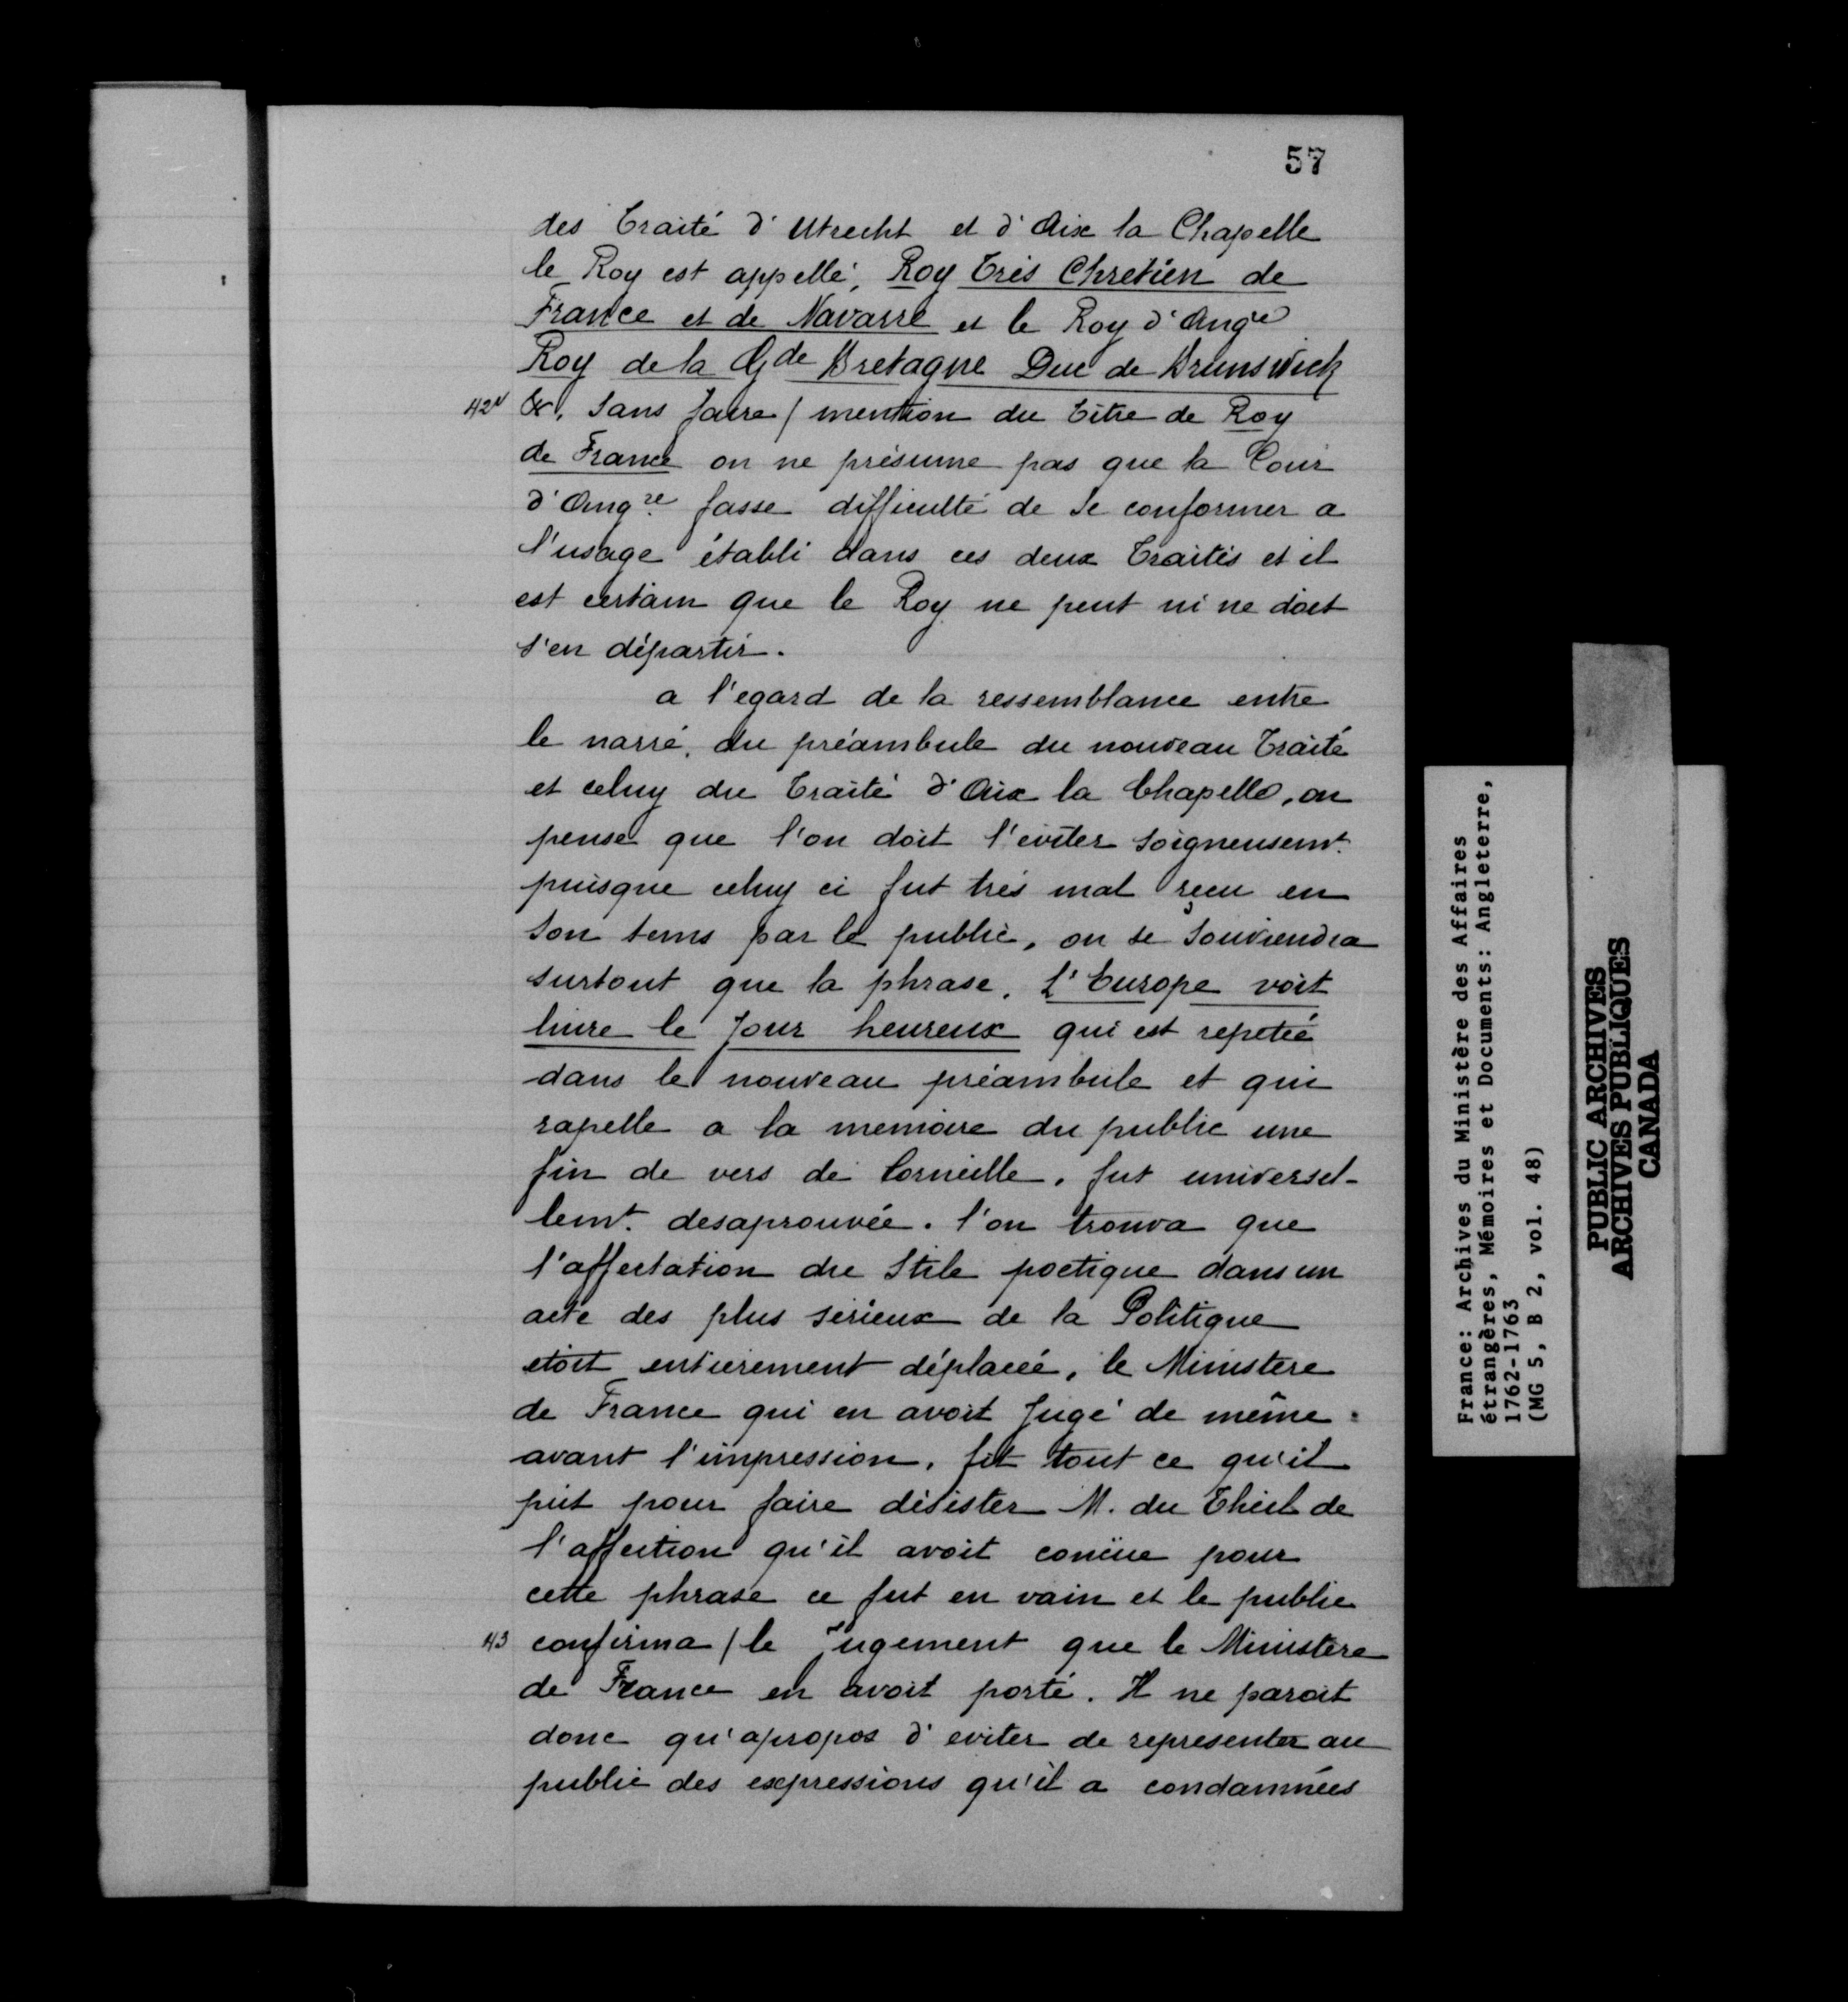 57
des Traité d'Utrecht et d'Aix la Chapelle
le Roy est appellé, Roy Très Chretien de
France et de Navarre et le Roy d'Ang^re
Roy de la G^de Bretagne Duc de Brunswick
42v &, sans faire / mention du titre de Roy
de France on ne présume pas que la Cour
d'Ang^re fasse difficulté de se conformer a
l'usage établi dans ces deux Traités et il
est certain que le Roy ne peut ni ne doit
s'en départir.
a l'egard de la ressemblance entre
le narré, du préambule du nouveau Traité
et celuy du Traité d'Aix la Chapelle, on
pense que l'on doit l'éviter soigneusem^t.
puisque celuy ci fut très mal reçu en
son tems par le public, on se souviendra
surtout que la phrase, l'Europe voit
luire le Jour heureux qui est repetée
dans le nouveau préambule et qui
rapelle a la memoire du public une
fin de vers de Corneille, fut universel-
lem^t. desaprouvée. l'on trouva que
l'affectation du stile poetique dans un
acte des plus serieux de la Politique
etoit entierement déplacée, le Ministere
de France qui en avoit Jugé de même
avant l'impression, fit tout ce qu'il
put pour faire désister M. du Theil de
l'affection qu'il avoit conçue pour
cette phrase ce fut en vain et le public
43 confirma / le Jugement que le Ministere
de France en avoit porté. Il ne paroit
donc qu'apropos d'eviter de representer au
public des expressions qu'il a condamnées
France: Archives du Ministère des Affaires
étrangères, Mémoires et Documents: Angleterre,
1762-1763
(MG 5, B 2, vol. 48)
PUBLIC ARCHIVES
ARCHIVES PUBLIQUES
CANADA